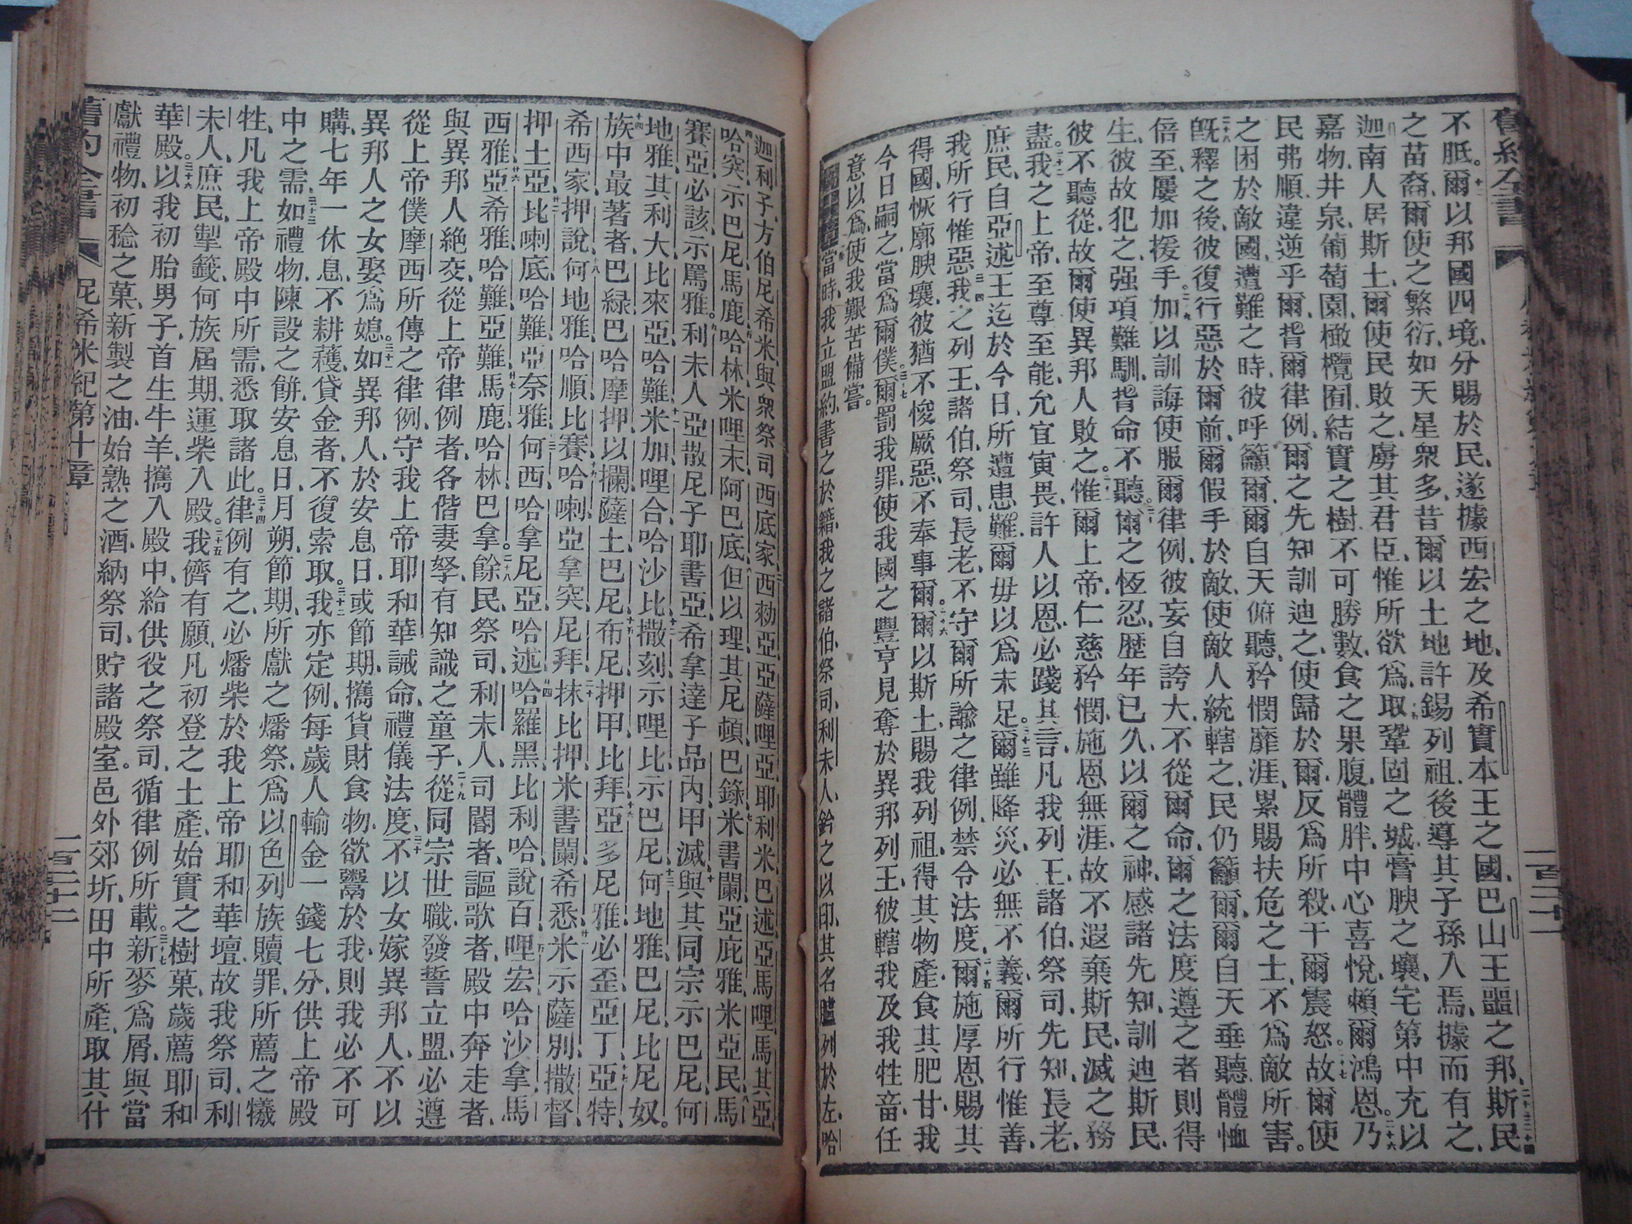 不胝爾以邦國四境分賜於民遂據西宏之地及希實本王之國巴山王噩之邦斯民
之苗裔爾使之繁衍如天星衆多昔爾以土地許錫列祖後導其子孫入焉據而有之
迦南人居斯土爾使民敗之虜其君臣惟所欲爲取鞏固之城膏腴之壤宅第中充以
嘉物井泉葡萄園橄欖囿結實之樹不可勝數食之果腹體胖中心喜悅賴爾鴻恩乃
民弗順違逆乎爾背爾律例爾之先知訓迪之使歸於爾反爲所殺干爾震怒故爾使
之困於敵國遭難之時彼呼籲爾爾自天俯聽矜憫靡涯累賜扶危之士不爲敵所害
旣釋之後彼復行惡於爾前爾假手於敵使敵人統轄之民仍籲爾爾自天垂聽體恤
倍至屢加援手加以訓誨使服爾律例彼妄自誇大不從爾命爾之法度遵之者則得
生彼故犯之强項難馴背命不聽爾之恆忍歷年已久以爾之神感諸先知訓迪斯民
彼不聽從故爾使異邦人敗之惟爾上帝仁慈矜憫施恩無涯故不遐棄斯民滅之務
盡我之上帝至尊至能允宜寅畏許人以恩必踐其言凡我列王諸伯祭司先知長老
庶民自亞述王迄於今日所遭患難爾毋以爲未足爾雖降災必無不義爾所行惟善
我所行惟惡我之列王諸伯祭司長老不守爾所諭之律例禁令法度爾施厚恩賜其
得國恢廓腴壤彼猶不悛厥惡不奉事爾爾以斯土賜我列祖得其物產食其肥甘我
今日嗣之當爲爾僕爾罰我罪使我國之豐亨見奪於異邦列王彼轄我及我牲畜任
意以爲使我艱苦備嘗
當時我立盟約書之於籍我之諸伯祭司利未人鈐之以印其名臚列於左哈
迦利子方伯尼希米與衆祭司西底家西勑亞亞薩哩亞耶利米巴述亞馬哩馬其亞
哈突示巴尼馬鹿哈林米哩末阿巴底但以理其尼頓巴錄米書闌亞庇雅米亞民馬
賽亞必該示罵雅利未人亞散尼子耶書亞希拿達子品內甲滅與其同宗示巴尼何
地雅其利大比來亞哈難米加哩合哈沙比撒刻示哩比示巴尼何地雅巴尼比尼奴
族中最著者巴綠巴哈摩押以攔薩土巴尼布尼押甲比拜亞多尼雅必歪亞丁亞特
希西家押說何地雅哈順比賽哈喇亞拿突尼拜抹比押米書闌希悉米示薩別撒督
押土亞比喇底哈難亞奈雅何西哈拿尼亞哈述哈羅黑比利哈說百哩宏哈沙拿馬
西雅亞希雅哈難亞難馬鹿哈林巴拿餘民祭司利未人司閽者謳歌者殿中奔走者
與異邦人絶交從上帝律例者各偕妻孥有知識之童子從同宗世職發誓立盟必遵
從上帝僕摩西所傳之律例守我上帝耶和華誡命禮儀法度不以女嫁異邦人不以
異邦人之女娶爲媳如異邦人於安息日或節期攜貨財食物欲鬻於我則我必不可
購七年一休息不耕穫貸金者不復索取我亦定例每歲人輸金一錢七分供上帝殿
中之需如禮物陳設之餅安息日月朔節期所獻之燔祭爲以色列族贖罪所薦之犧
牲凡我上帝殿中所需悉取諸此律例有之必燔柴於我上帝耶和華壇故我祭司利
未人庶民掣籤何族屆期運柴入殿我儕有願凡初登之土產始實之樹菓歲薦耶和
華殿以我初胎男子首生牛羊攜入殿中給供役之祭司循律例所載新麥爲屑與當
獻禮物初稔之菓新製之油始熟之酒納祭司貯諸殿室邑外郊圻田中所產取其什
舊約全書 尼希米紀第十章 一百二十二